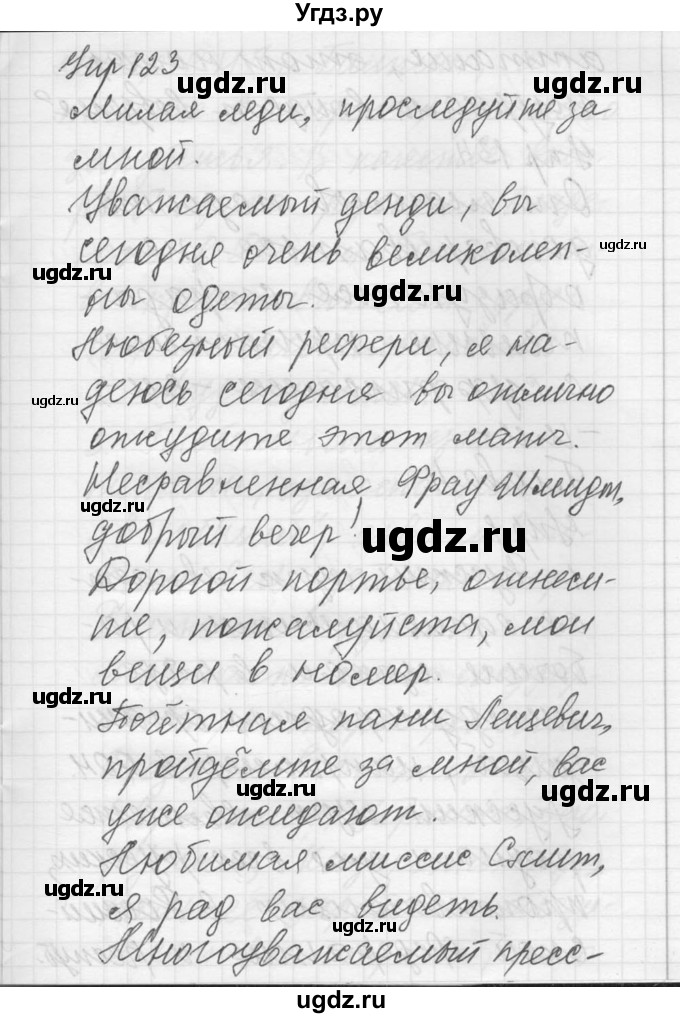 Угдз.ру
Упр 123
ugdz.ru
ugdz.ru
Милая леди, проследуйте за
мной.
Уважаемый денди, вы
сегодня очень великолеп-
ugdz.ru
ugdz.ru
ны одеты.
ugdz.ru
Любезный рефери, я на-
деюсь сегодня вы отлично
ugdz.ru
отсудите этот матч.
Несравненная Фрау Шмидт,
ugdz.ru
добрый вечер!
ugdz.ru
Дорогой портье, отнеси-
те, пожалуйста, мои
вещи в номер.
ugdz.ru
Почётная пани Лещевич,
пройдёмте за мной, вас
ugdz.ru
ugdz.ru
уже ожидают.
Любимая миссис Смит,
ugdz.ru
я рад вас видеть.
Многоуважаемый пресс-
ugdz.ru